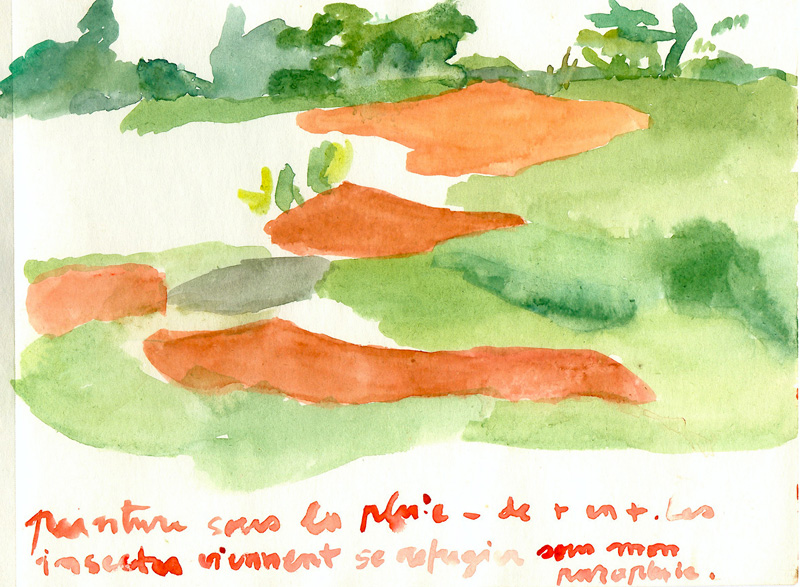 peinture sous la pluie - de + en +. Les
insectes viennent se réfugier sous mon
parapluie.